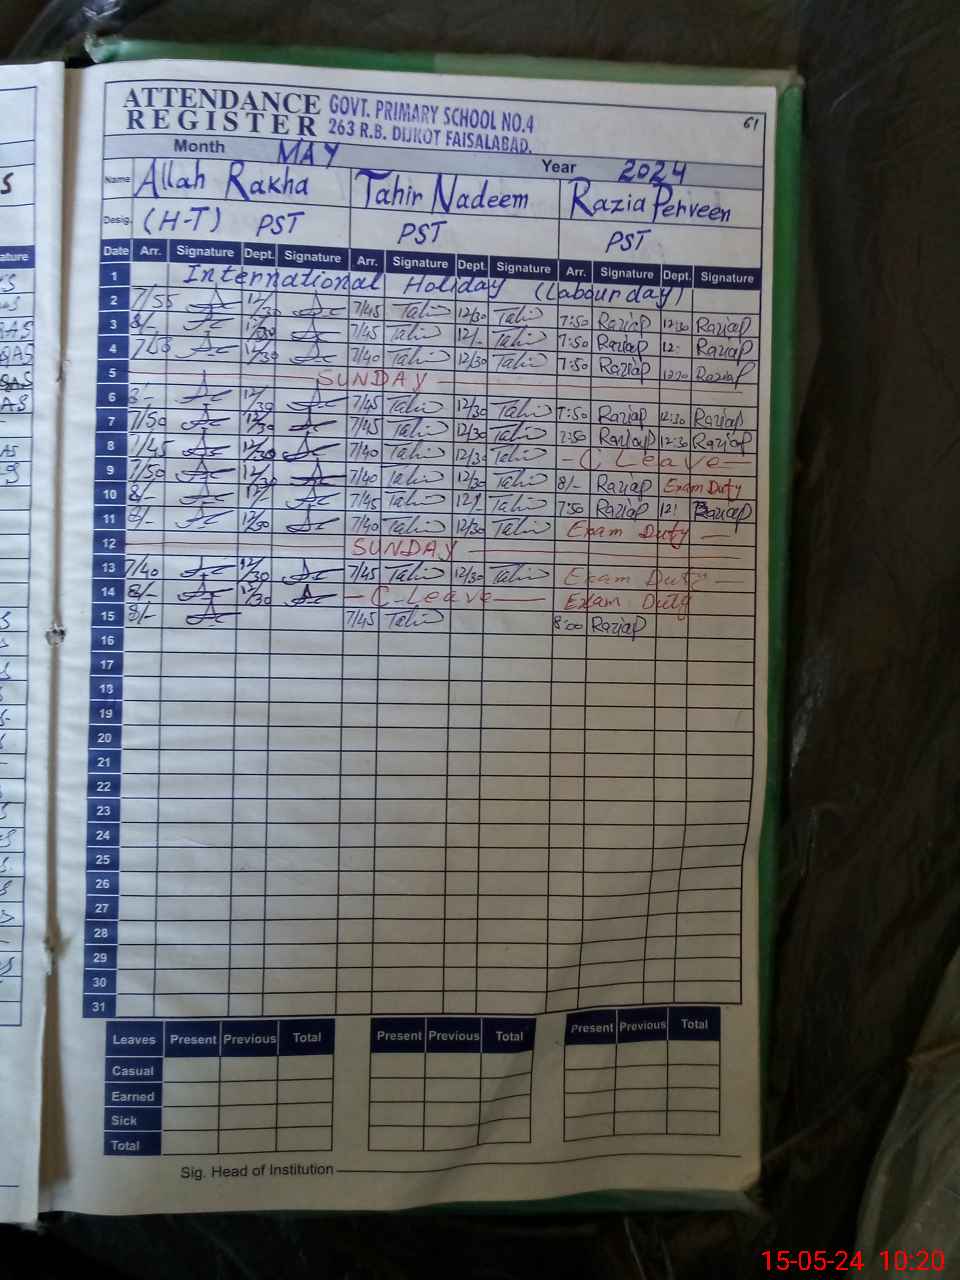 61
ATTENDANCE REGISTER
GOVT. PRIMARY SCHOOL NO.4
263 R.B. DIJKOT FAISALABAD.
Month MAY Year 2024
Name Allah Rakha Tahir Nadeem Razia Perveen
Desig. (H-T) PST PST PST
Date Arr. Signature Dept. Signature Arr. Signature Dept. Signature Arr. Signature Dept. Signature
1 International Holiday (Labour day)
2 7/55 12/30 7/45 Tahir 12/30 Tahir 7:50 Raziap 12:30 Raziap
3 8/- 12/30 7/45 Tahir 12/- Tahir 7:50 Raziap 12: Raziap
4 7/55 12/30 7/40 Tahir 12/30 Tahir 7:50 Raziap 12:30 Raziap
5 SUNDAY
6 8/- 12/30 7/45 Tahir 12/30 Tahir 7:50 Raziap 12:30 Raziap
7 7/50 12/30 7/45 Tahir 12/30 Tahir 7:50 Raziap 12:30 Raziap
8 7/45 12/30 7/40 Tahir 12/30 Tahir - C Leave -
9 7/50 12/30 7/40 Tahir 12/30 Tahir 8/- Raziap Exam Duty
10 8/- 12/ 7/45 Tahir 12/- Tahir 7:50 Raziap 12: Raziap
11 8/- 12/30 7/40 Tahir 12/30 Tahir Exam Duty -
12 SUNDAY
13 7/40 12/30 7/45 Tahir 12/30 Tahir Exam Duty -
14 8/- 12/30 - C Leave - Exam Duty
15 8/- 7/45 Tahir 8:00 Raziap
16
17
18
19
20
21
22
23
24
25
26
27
28
29
30
31
Leaves Present Previous Total Present Previous Total Present Previous Total
Casual
Earned
Sick
Total
Sig. Head of Institution
15-05-24 10:20